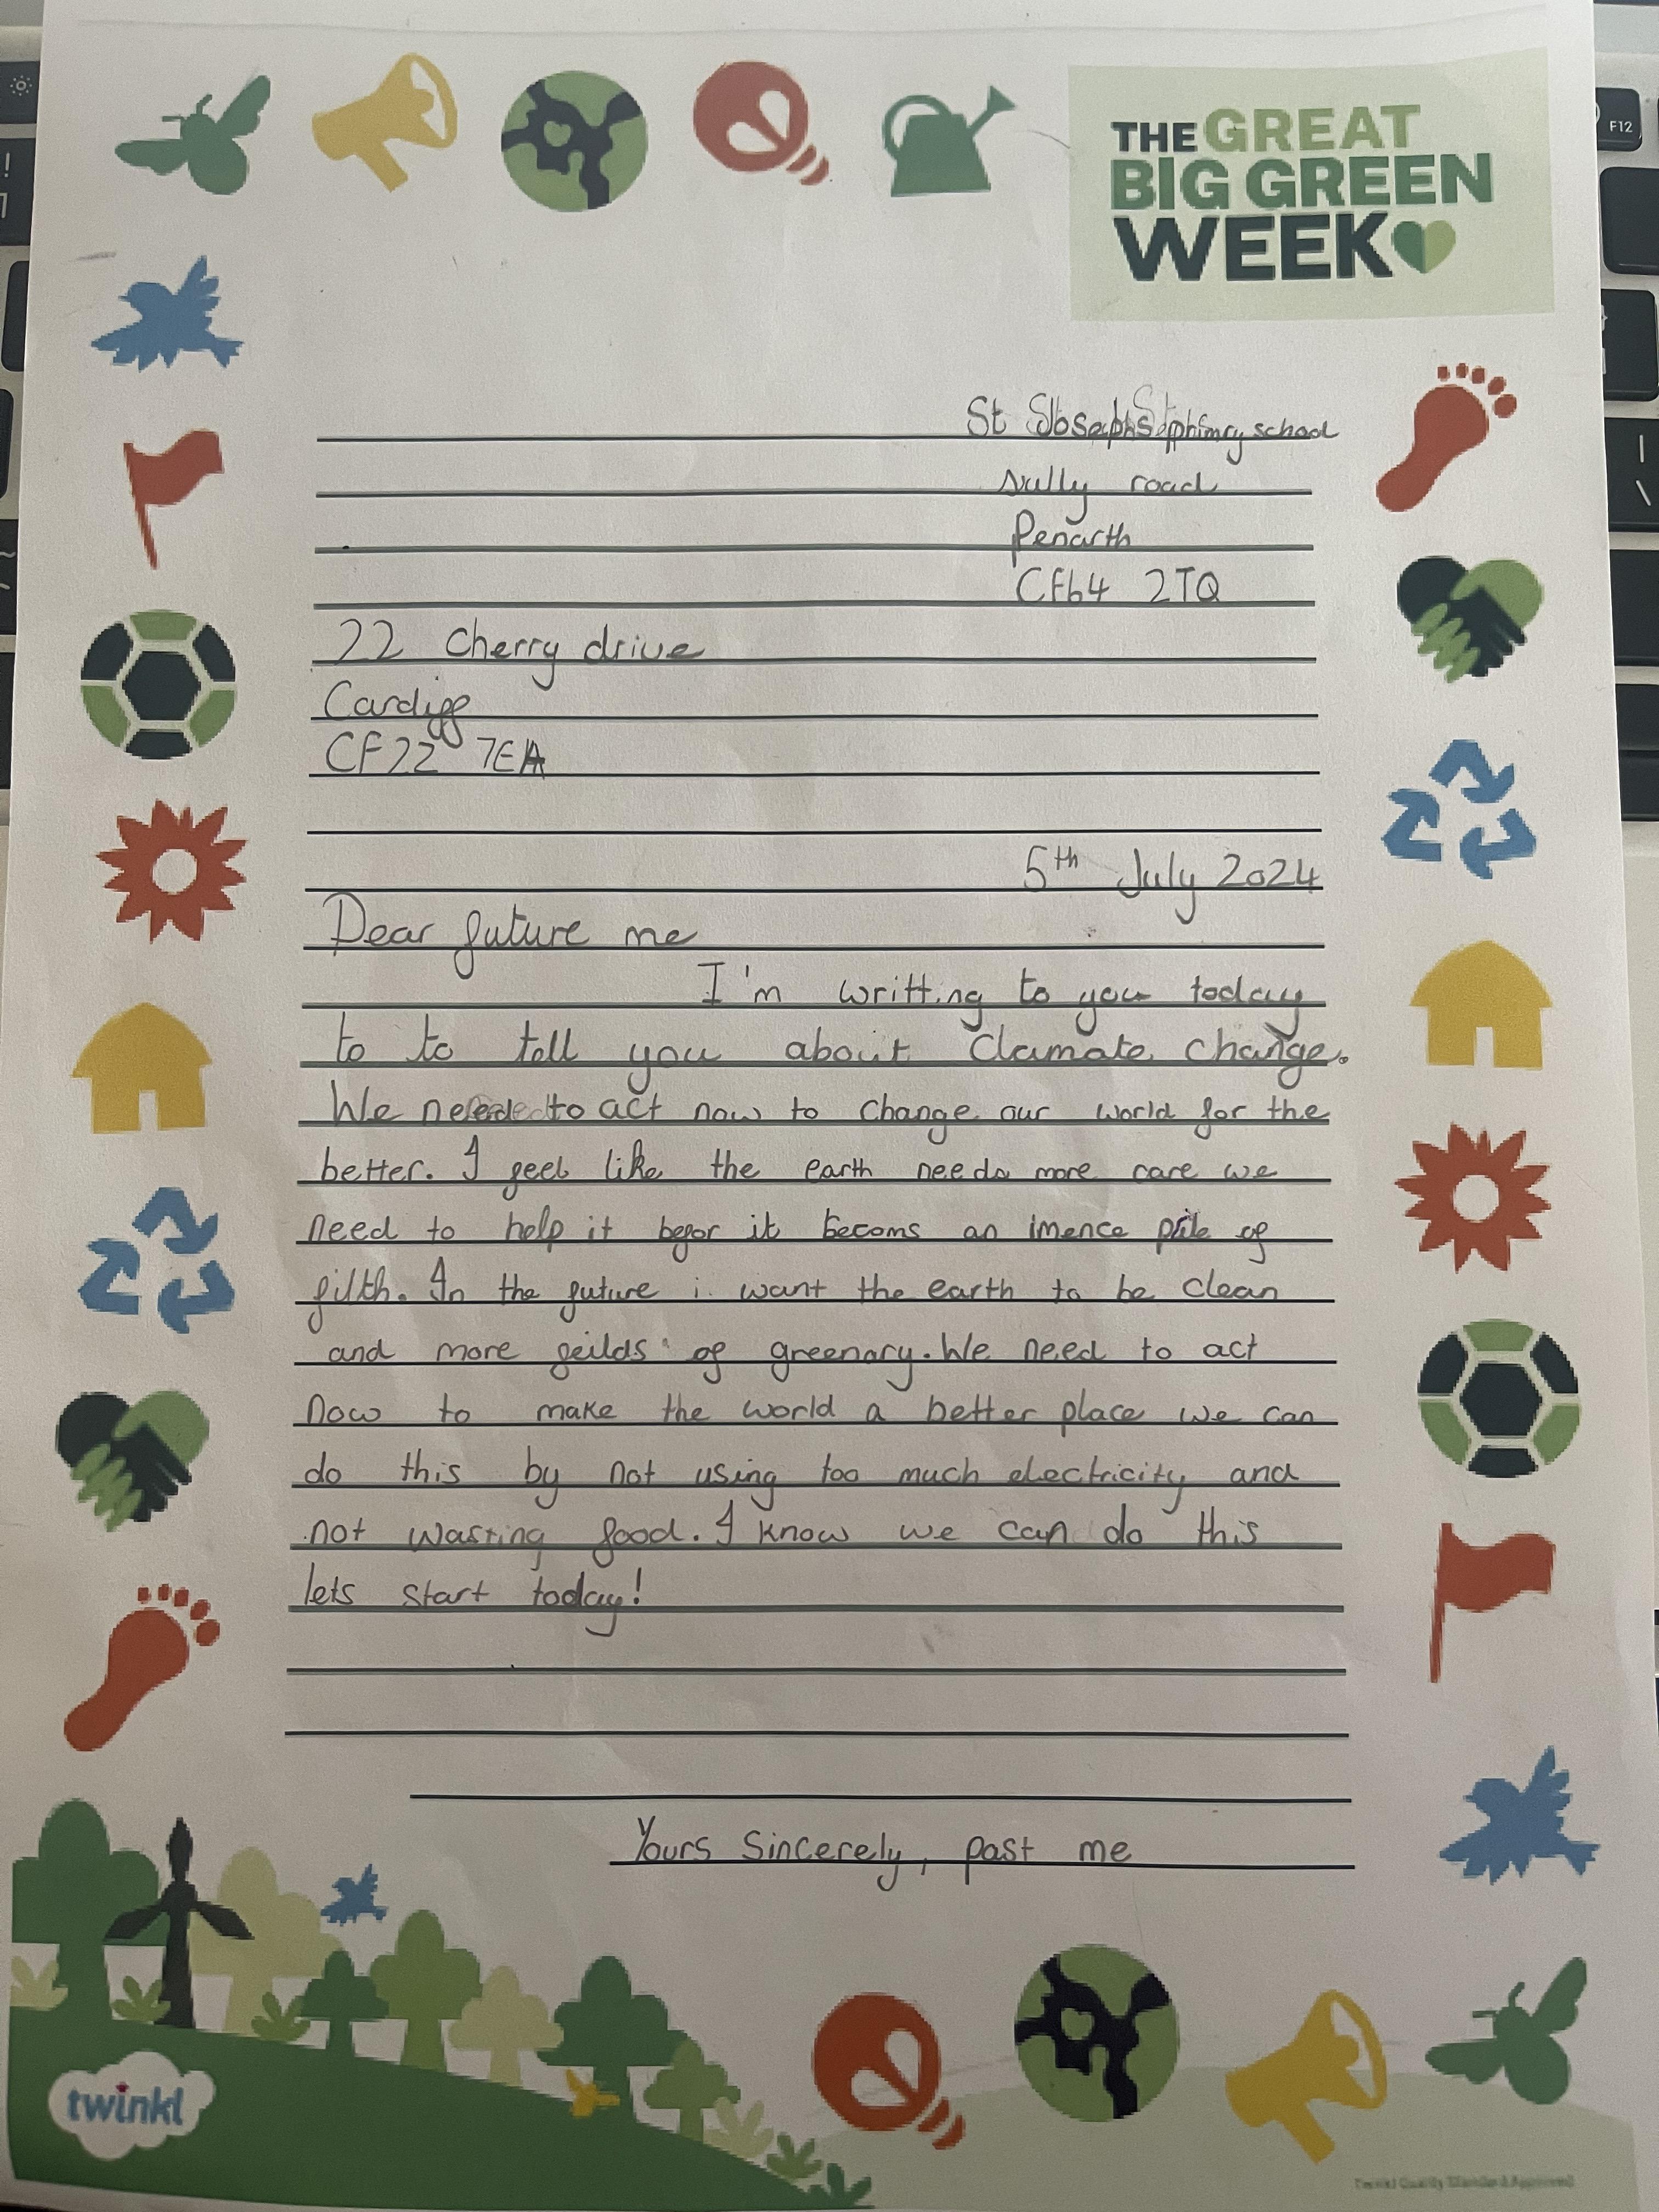 THE GREAT
BIG GREEN
WEEK
F12
St Josephs primry school
sully road
Penarth
CF64 2TQ
22 Cherry drive
Cardiff
CF22 7EA
5th July 2024
Dear future me
I'm writting to you today
to to tell you about Clamate change.
We need to act now to change our world for the
better. I feel like the earth needs more care we
need to help it befor it becoms an imence pile of
filth. In the future i want the earth to be clean
and more feilds of greenary. We need to act
now to make the world a better place we can
do this by not using too much electricity and
not wasting food. I know we can do this
lets start today!
Yours Sincerely, past me
twinkl
Twinkl Quality Standard Approved